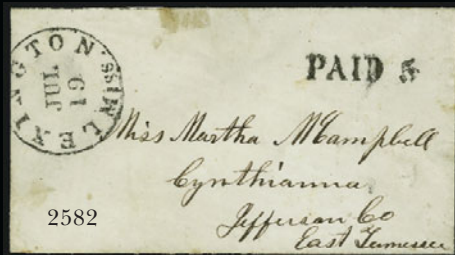 LEXINGTON MISS.
JUL
19
PAID 5
Miss Martha McCampbell
Cynthianna
Jefferson Co
East Tennessee
2582